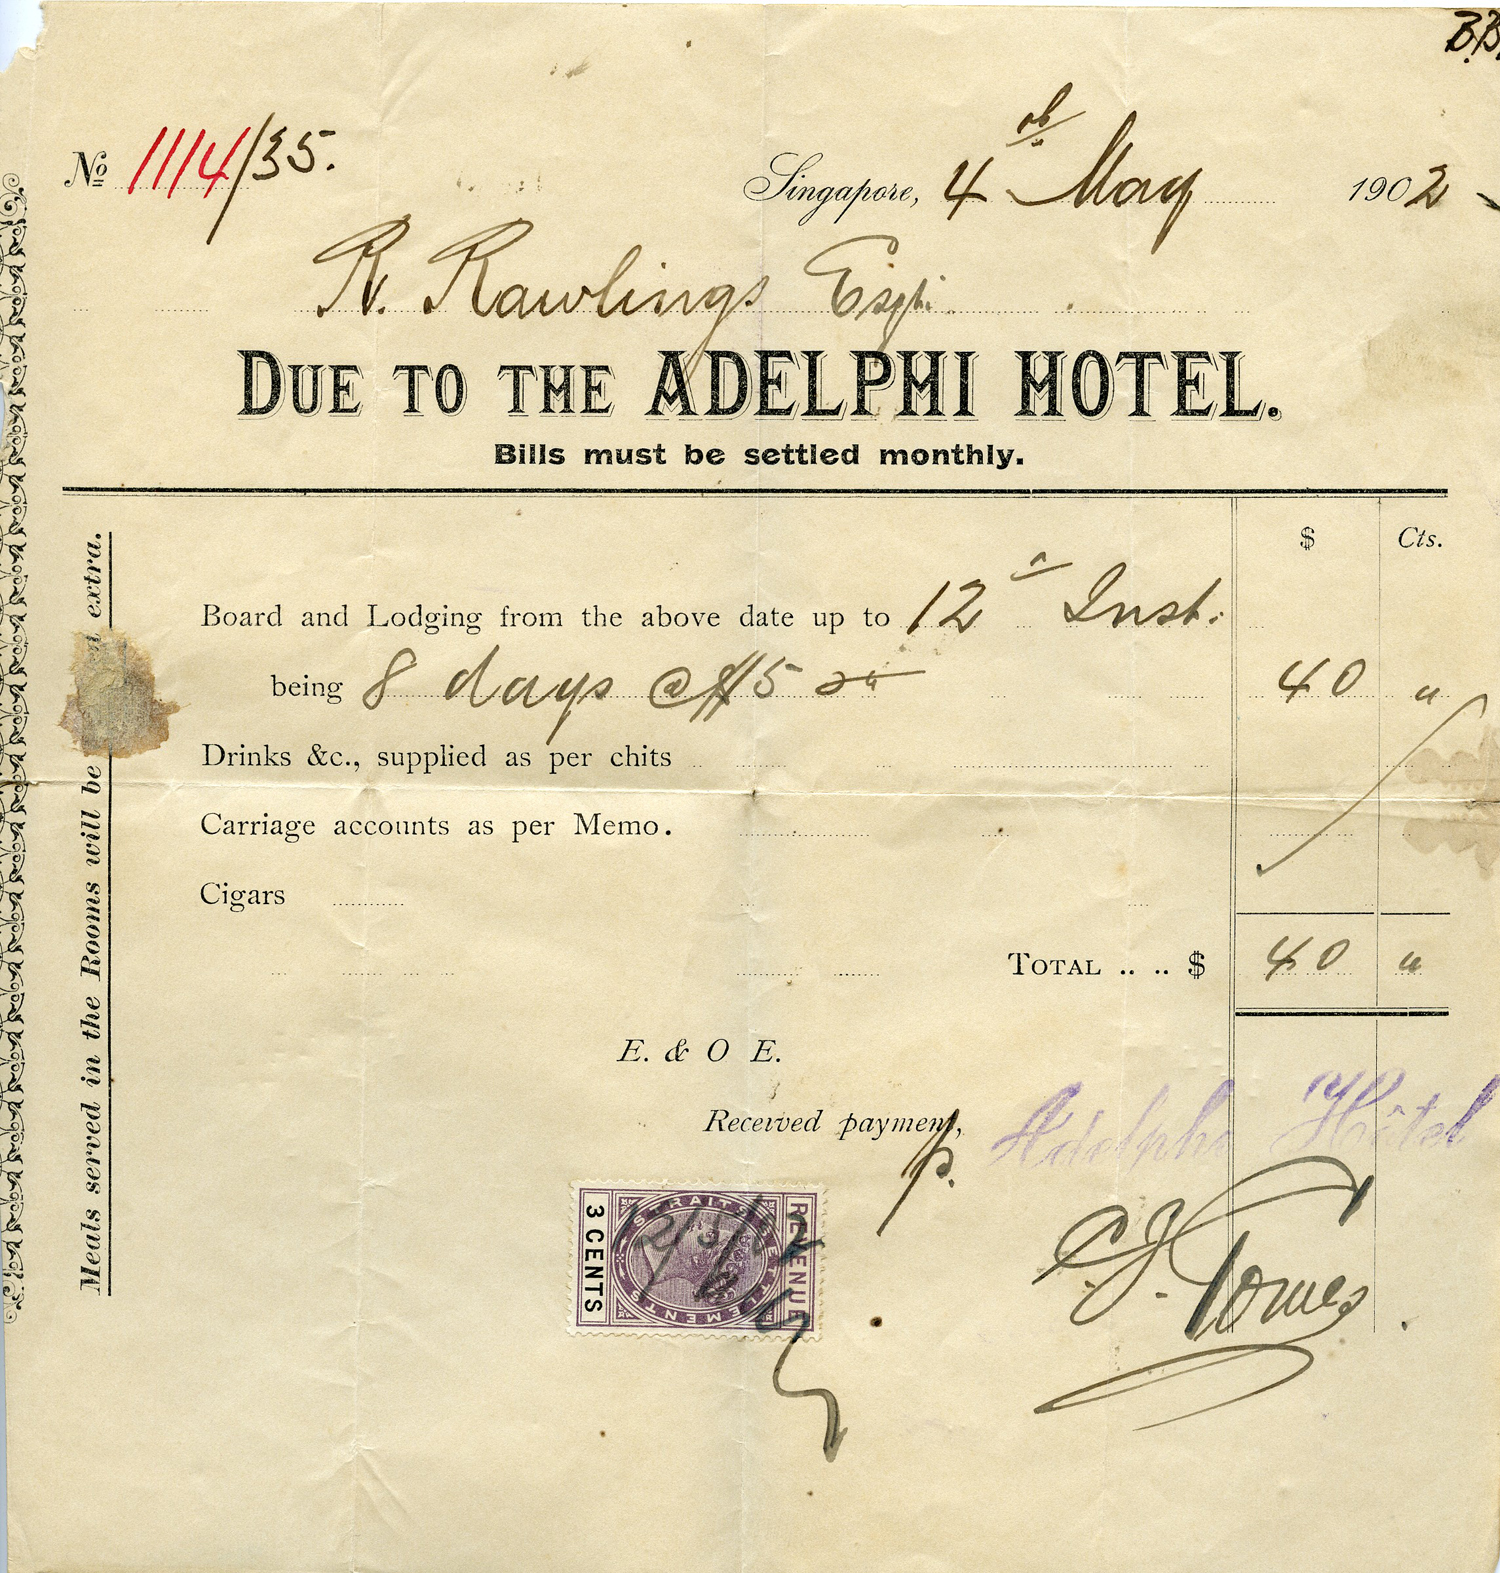 B.B.
No 1114/35.
Singapore, 4th May 1902
R. Rawlings Esqr.
DUE TO THE ADELPHI HOTEL.
Bills must be settled monthly.
$ Cts.
Board and Lodging from the above date up to 12" Inst:
being 8 days @ $5 40 "
Drinks &c., supplied as per chits
Carriage accounts as per Memo.
Cigars
TOTAL .. .. $ 40 "
E. & O E.
Received payment,
p. Adelphi Hôtel
STRAITS SETTLEMENTS
REVENUE
3 CENTS
12/5/02
Meals served in the Rooms will be extra.